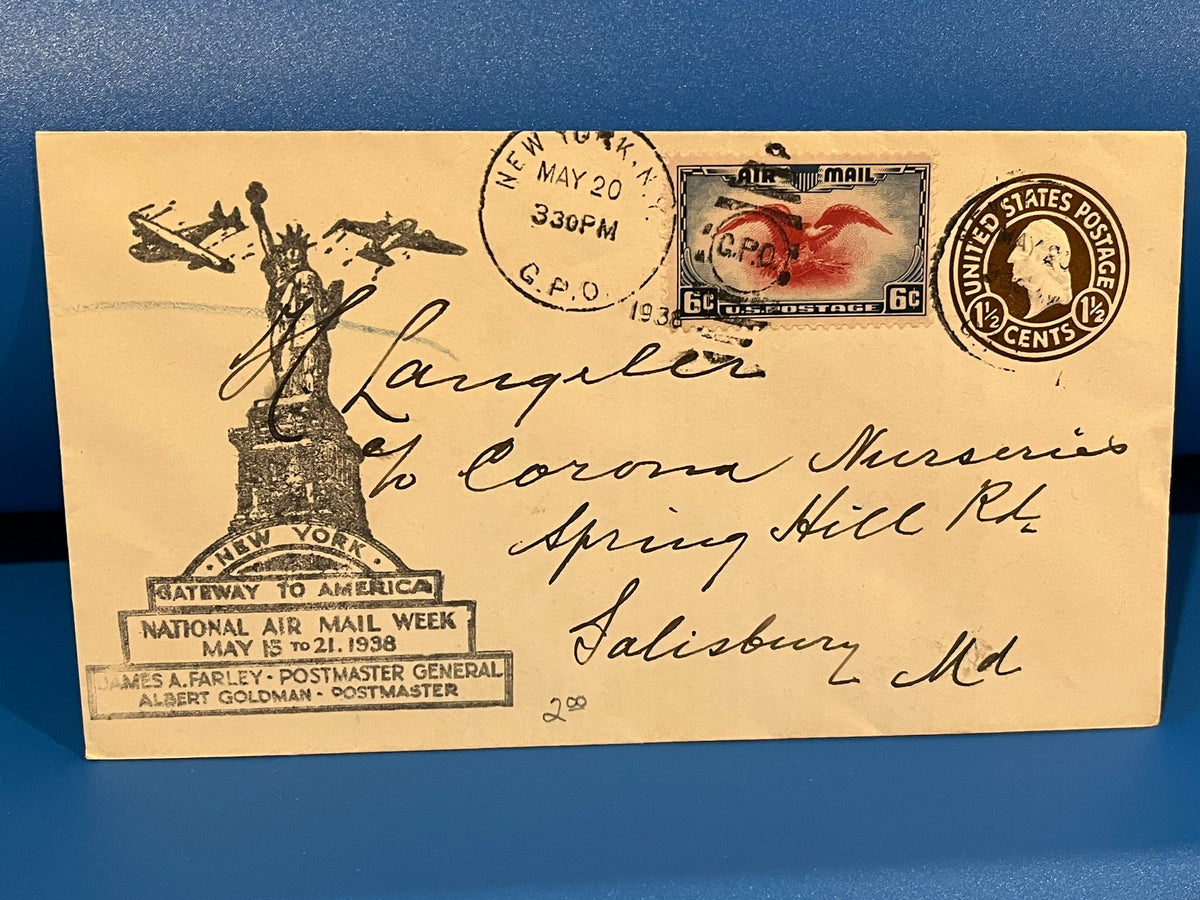 NEW YORK, N.Y.
MAY 20
330PM
G.P.O.
1938
AIR MAIL
G.P.O.
6¢ U.S. POSTAGE 6¢
UNITED STATES POSTAGE
MAY 20
1½ CENTS 1½
H Langeler
c/o Corona Nurseries
Spring Hill Rd.
Salisbury Md
• NEW YORK •
GATEWAY TO AMERICA
NATIONAL AIR MAIL WEEK
MAY 15 TO 21. 1938
JAMES A. FARLEY - POSTMASTER GENERAL
ALBERT GOLDMAN - POSTMASTER
2 00